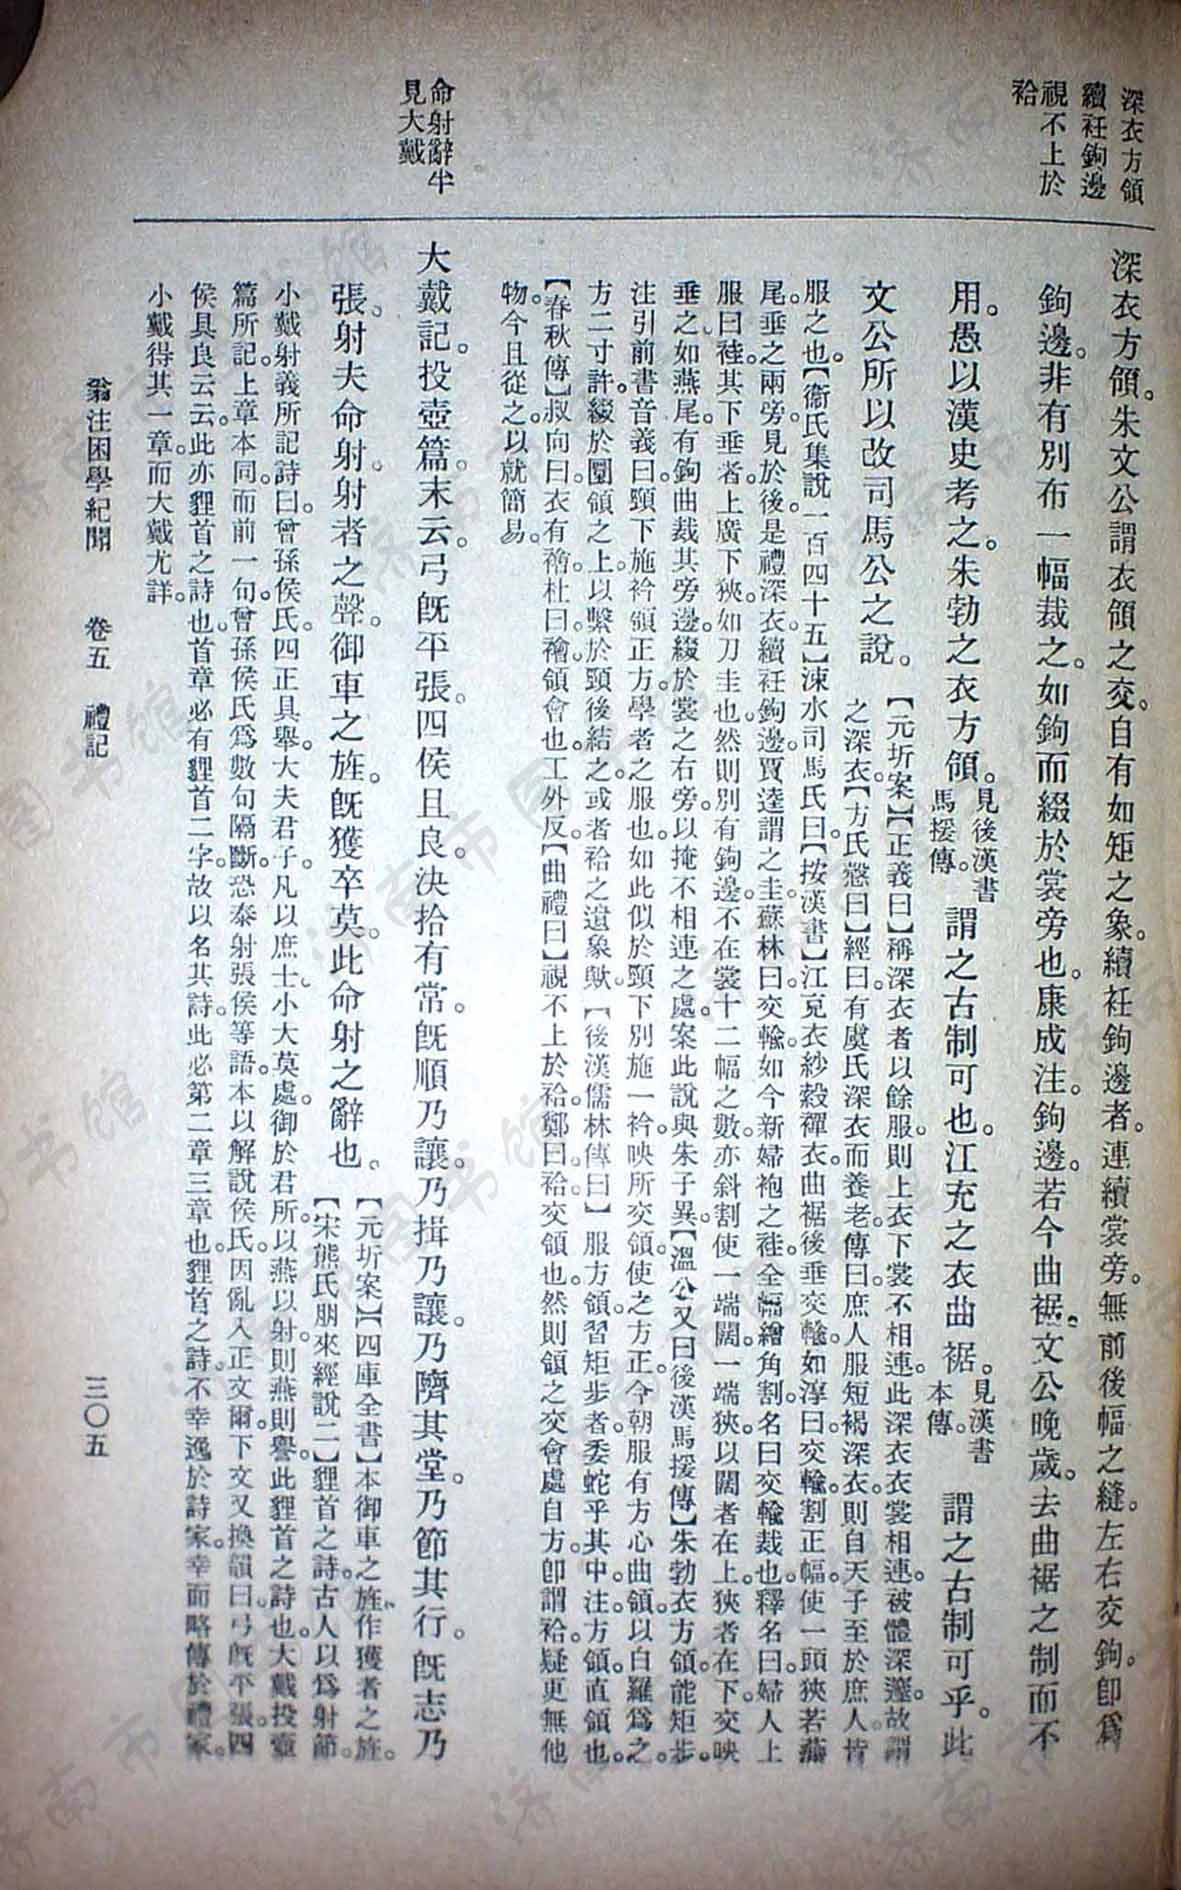 深衣方領
續衽鉤邊
視不上於
袷
深衣方領。朱文公謂衣領之交。自有如矩之象。續衽鉤邊者。連續裳旁。無前後幅之縫。左右交鉤。卽爲
鉤邊。非有別布一幅裁之。如鉤而綴於裳旁也。康成注。鉤邊。若今曲裾。文公晚歲。去曲裾之制而不
用。愚以漢史考之。朱勃之衣方領。見後漢書馬援傳。謂之古制可也。江充之衣曲裾。見漢書本傳。謂之古制可乎。此
文公所以改司馬公之說。【元圻案】【正義曰】稱深衣者。以餘服則上衣下裳不相連。此深衣衣裳相連。被體深邃。故謂
之深衣。【方氏慤曰】經曰。有虞氏深衣而養老。傳曰。庶人服短褐深衣。則自天子至於庶人。皆
服之也。【衞氏集說一百四十五】涑水司馬氏曰。【按漢書】江充衣紗縠禪衣。曲裾後垂交輸。如淳曰。交輸。割正幅。使一頭狹若燕
尾。垂之兩旁。見於後。是禮深衣。續衽鉤邊。賈逵謂之圭。蘇林曰。交輸。如今新婦袍之袿。全幅繒角割。名曰交輸裁也。釋名曰。婦人上
服曰袿。其下垂者。上廣下狹。如刀圭也。然則別有鉤邊。不在裳十二幅之數。亦斜割使一端闊。一端狹。以闊者在上。狹者在下。交映
垂之如燕尾。有鉤曲裁其旁邊。綴於裳之右旁。以掩不相連之處。案此說與朱子異。【溫公又曰後漢馬援傳】朱勃衣方領。能矩步。
注引前書音義曰。頸下施衿領正方。學者之服也。如此似於頸下別施一衿。映所交領。使之方正。今朝服有方心曲領。以白羅爲之。
方二寸許。綴於圜領之上。以繫於頸後結之。或者袷之遺象歟。【後漢儒林傳曰】服方領。習矩步者。委蛇乎其中。注。方領。直領也。
【春秋傳】叔向曰。衣有襘。杜曰。襘。領會也。工外反。【曲禮曰】視不上於袷。鄭曰。袷。交領也。然則領之交會處自方。卽謂袷。疑更無他
物。今且從之。以就簡易。
命射辭半
見大戴
大戴記。投壺篇。末云。弓旣平張。四侯且良。決拾有常。旣順乃讓。乃揖乃讓。乃隮其堂。乃節其行。旣志乃
張。射夫命射。射者之聲。御車之旌。旣獲卒莫。此命射之辭也。【元圻案】【四庫全書】本御車之旌作獲者之旌。
【宋熊氏朋來經說二】貍首之詩。古人以爲射節。
小戴射義所記詩曰。曾孫侯氏。四正具舉。大夫君子。凡以庶士。小大莫處。御於君所。以燕以射。則燕則譽。此貍首之詩也。大戴投壺
篇所記。上章本同。而前一句。曾孫侯氏爲數句隔斷。恐泰射張侯等語。本以解說侯氏。因亂入正文爾。下文又換韻曰。弓旣平張。四
侯具良云云。此亦貍首之詩也。首章必有貍首二字。故以名其詩。此必第二章三章也。貍首之詩。不幸逸於詩家。幸而略傳於禮家。
小戴得其一章。而大戴尤詳。
翁注困學紀聞　卷五　禮記　三〇五